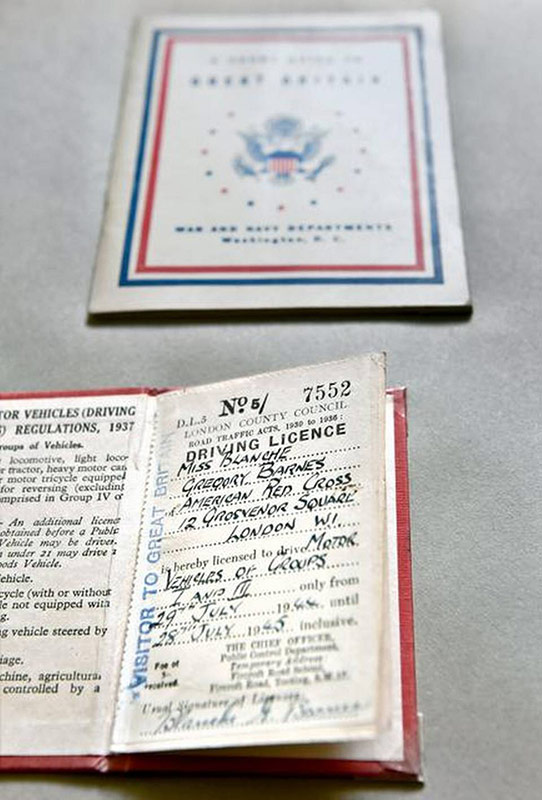 A SHORT GUIDE TO
GREAT BRITAIN
WAR AND NAVY DEPARTMENTS
Washington, D. C.
TOR VEHICLES (DRIVING
) REGULATIONS, 1937
roups of Vehicles.
locomotive, light loco-
r tractor, heavy motor car
motor tricycle equippe
for reversing (excludin
omprised in Group IV o
- An additional licenc
obtained before a Publ
Vehicle may be driven
n under 21 may drive a
oods Vehicle.
ehicle.
cycle (with or without
le not equipped with
ng vehicle steered by
iage.
chine, agricultura
controlled by a
VISITOR TO GREAT BRITAIN
D.L.5 No 5/ 7552
LONDON COUNTY COUNCIL
ROAD TRAFFIC ACTS, 1930 to 1936:
DRIVING LICENCE
MISS BLANCHE
GREGORY BARNES
AMERICAN RED CROSS
12 GROSVENOR SQUARE
LONDON W1.
is hereby licensed to drive MOTOR
VEHICLES OF GROUPS
I AND III only from
29th JULY 1944 until
28th JULY 1945 inclusive.
THE CHIEF OFFICER,
Public Control Department,
Temporary Address
Fircroft Road School,
Fircroft Road, Tooting, S.W.17.
Fee of
5/-
received.
Usual Signature of Licensee
Blanche G Barnes